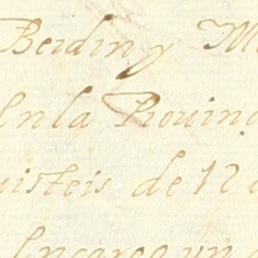 Berdin y M
Enla Prouinc
uisteis de 12 d
Encargo un